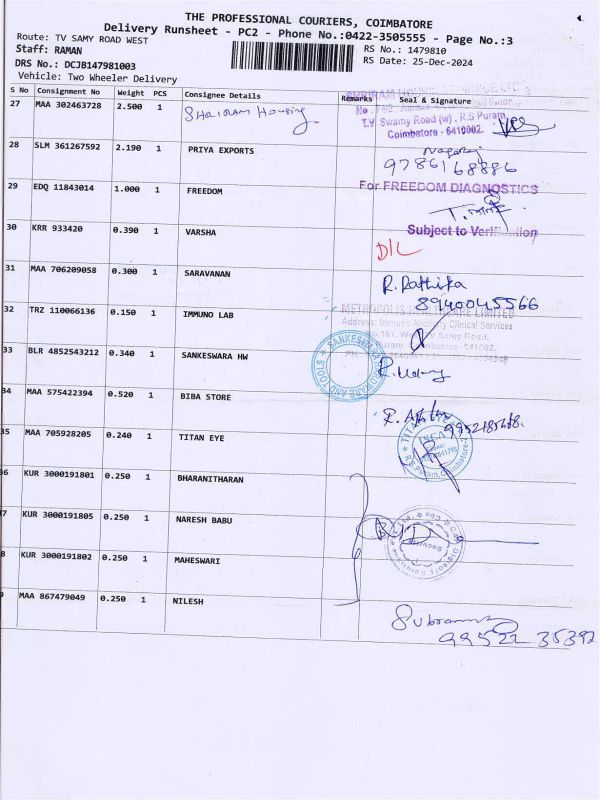 THE PROFESSIONAL COURIERS, COIMBATORE
Delivery Runsheet - PC2 - Phone No.:0422-3505555 - Page No.:3
Route: TV SAMY ROAD WEST
Staff: RAMAN
RS No.: 1479810
DRS No.: DCJB147981003
RS Date: 25-Dec-2024
Vehicle: Two Wheeler Delivery
S No Consignment No Weight PCS Consignee Details Remarks Seal & Signature
27 MAA 302463728 2.500 1 Shriram Housing
T.V. Swamy Road (w), R.S Puram,
Coimbatore - 641002.
28 SLM 361267592 2.190 1 PRIYA EXPORTS Nagaraj
9786168886
29 EDQ 11843014 1.000 1 FREEDOM
For FREEDOM DIAGNOSTICS
30 KRR 933420 0.390 1 VARSHA
Subject to Verification
D/L
31 MAA 706209058 0.300 1 SARAVANAN R. Rathika
8940045566
32 TRZ 110066136 0.150 1 IMMUNO LAB
METROPOLIS HEALTHCARE LIMITED
33 BLR 4852543212 0.340 1 SANKESWARA HW
SANKESWARA HARDWARE AND TOOLS
34 MAA 575422394 0.520 1 BIBA STORE
35 MAA 705928205 0.240 1 TITAN EYE
R.S Puram, Coimbatore-2
36 KUR 3000191801 0.250 1 BHARANITHARAN
37 KUR 3000191805 0.250 1 NARESH BABU
38 KUR 3000191802 0.250 1 MAHESWARI
39 MAA 867479049 0.250 1 NILESH
99522 35392